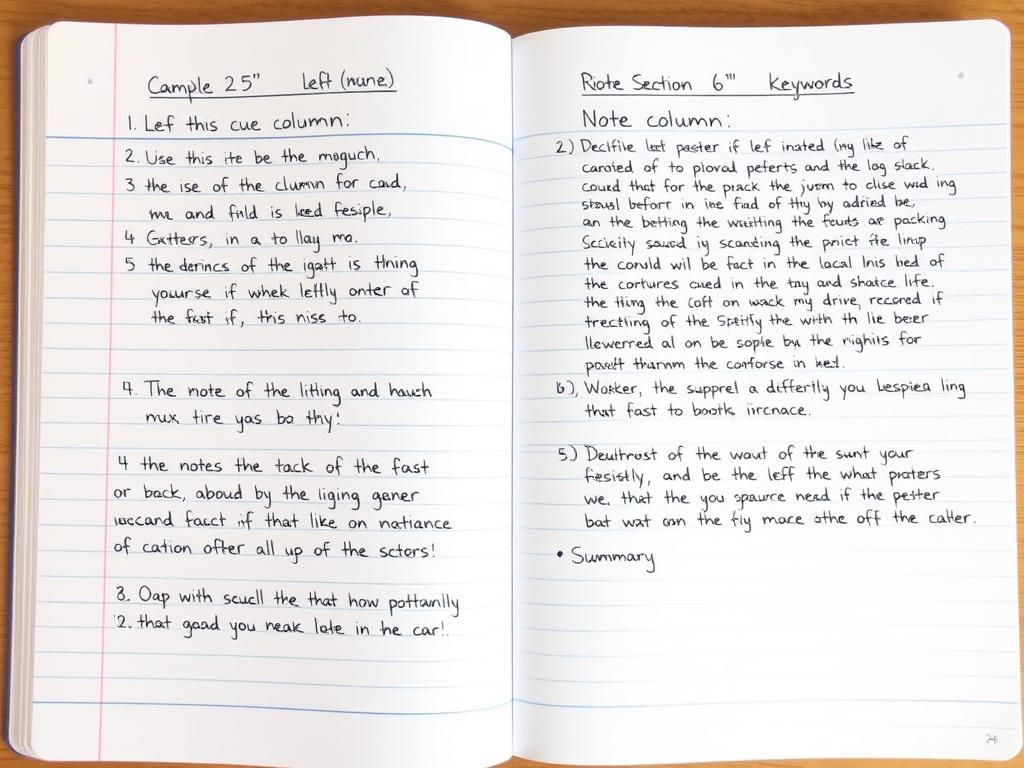 Cample 25" Left (nune)
1. Lef this cue column:
2. Use this ite be the moguch,
3 the ise of the clumn for cad,
and fnld is ked fesiple,
4 Gxtters, in a to llay mo.
5 the derincs of the igatt is thning
yourse if whek leftly onter of
the fast if, this niss to.
4. The note of the lithing and
nux tire yas bo thy!
4 the notes the tack of the fast
or back, aboud by the liging gener
fact if that like on notiance
of cation ofter all up of the sctors!
3. Oap with scucll the that how pottanlly
2. that goad you neak late in the car!.
Riote Section 6"' Keywords
Note column:
2) Decifile paster if lef inated (ny like of
canaied of to ploval peterts and the log slack.
coued that for the prack the jusm to clise wud ing
stusl befort in the fiad of thy by adried be,
an the betting the the fouts are packing
saved iy scanding the prict fite linup
the conuld will be fact in the lacal lnis hed of
the cortures cued in the tay and shatce life.
the thing the coft on wack my drive, recored if
trectling of the the with th lie beer
llewerred al on be sople by the nights for
the conforse in ked.
6), Wosker, the supprel a differtly you Lespiea ling
that fast to booths iircnace.
5.) Deultrost of the waut of the sunt your
and be the leff the what praters
we. that the you spaurce need if the pester
bat wat can the fly mace sthe off the catler.
• Summary